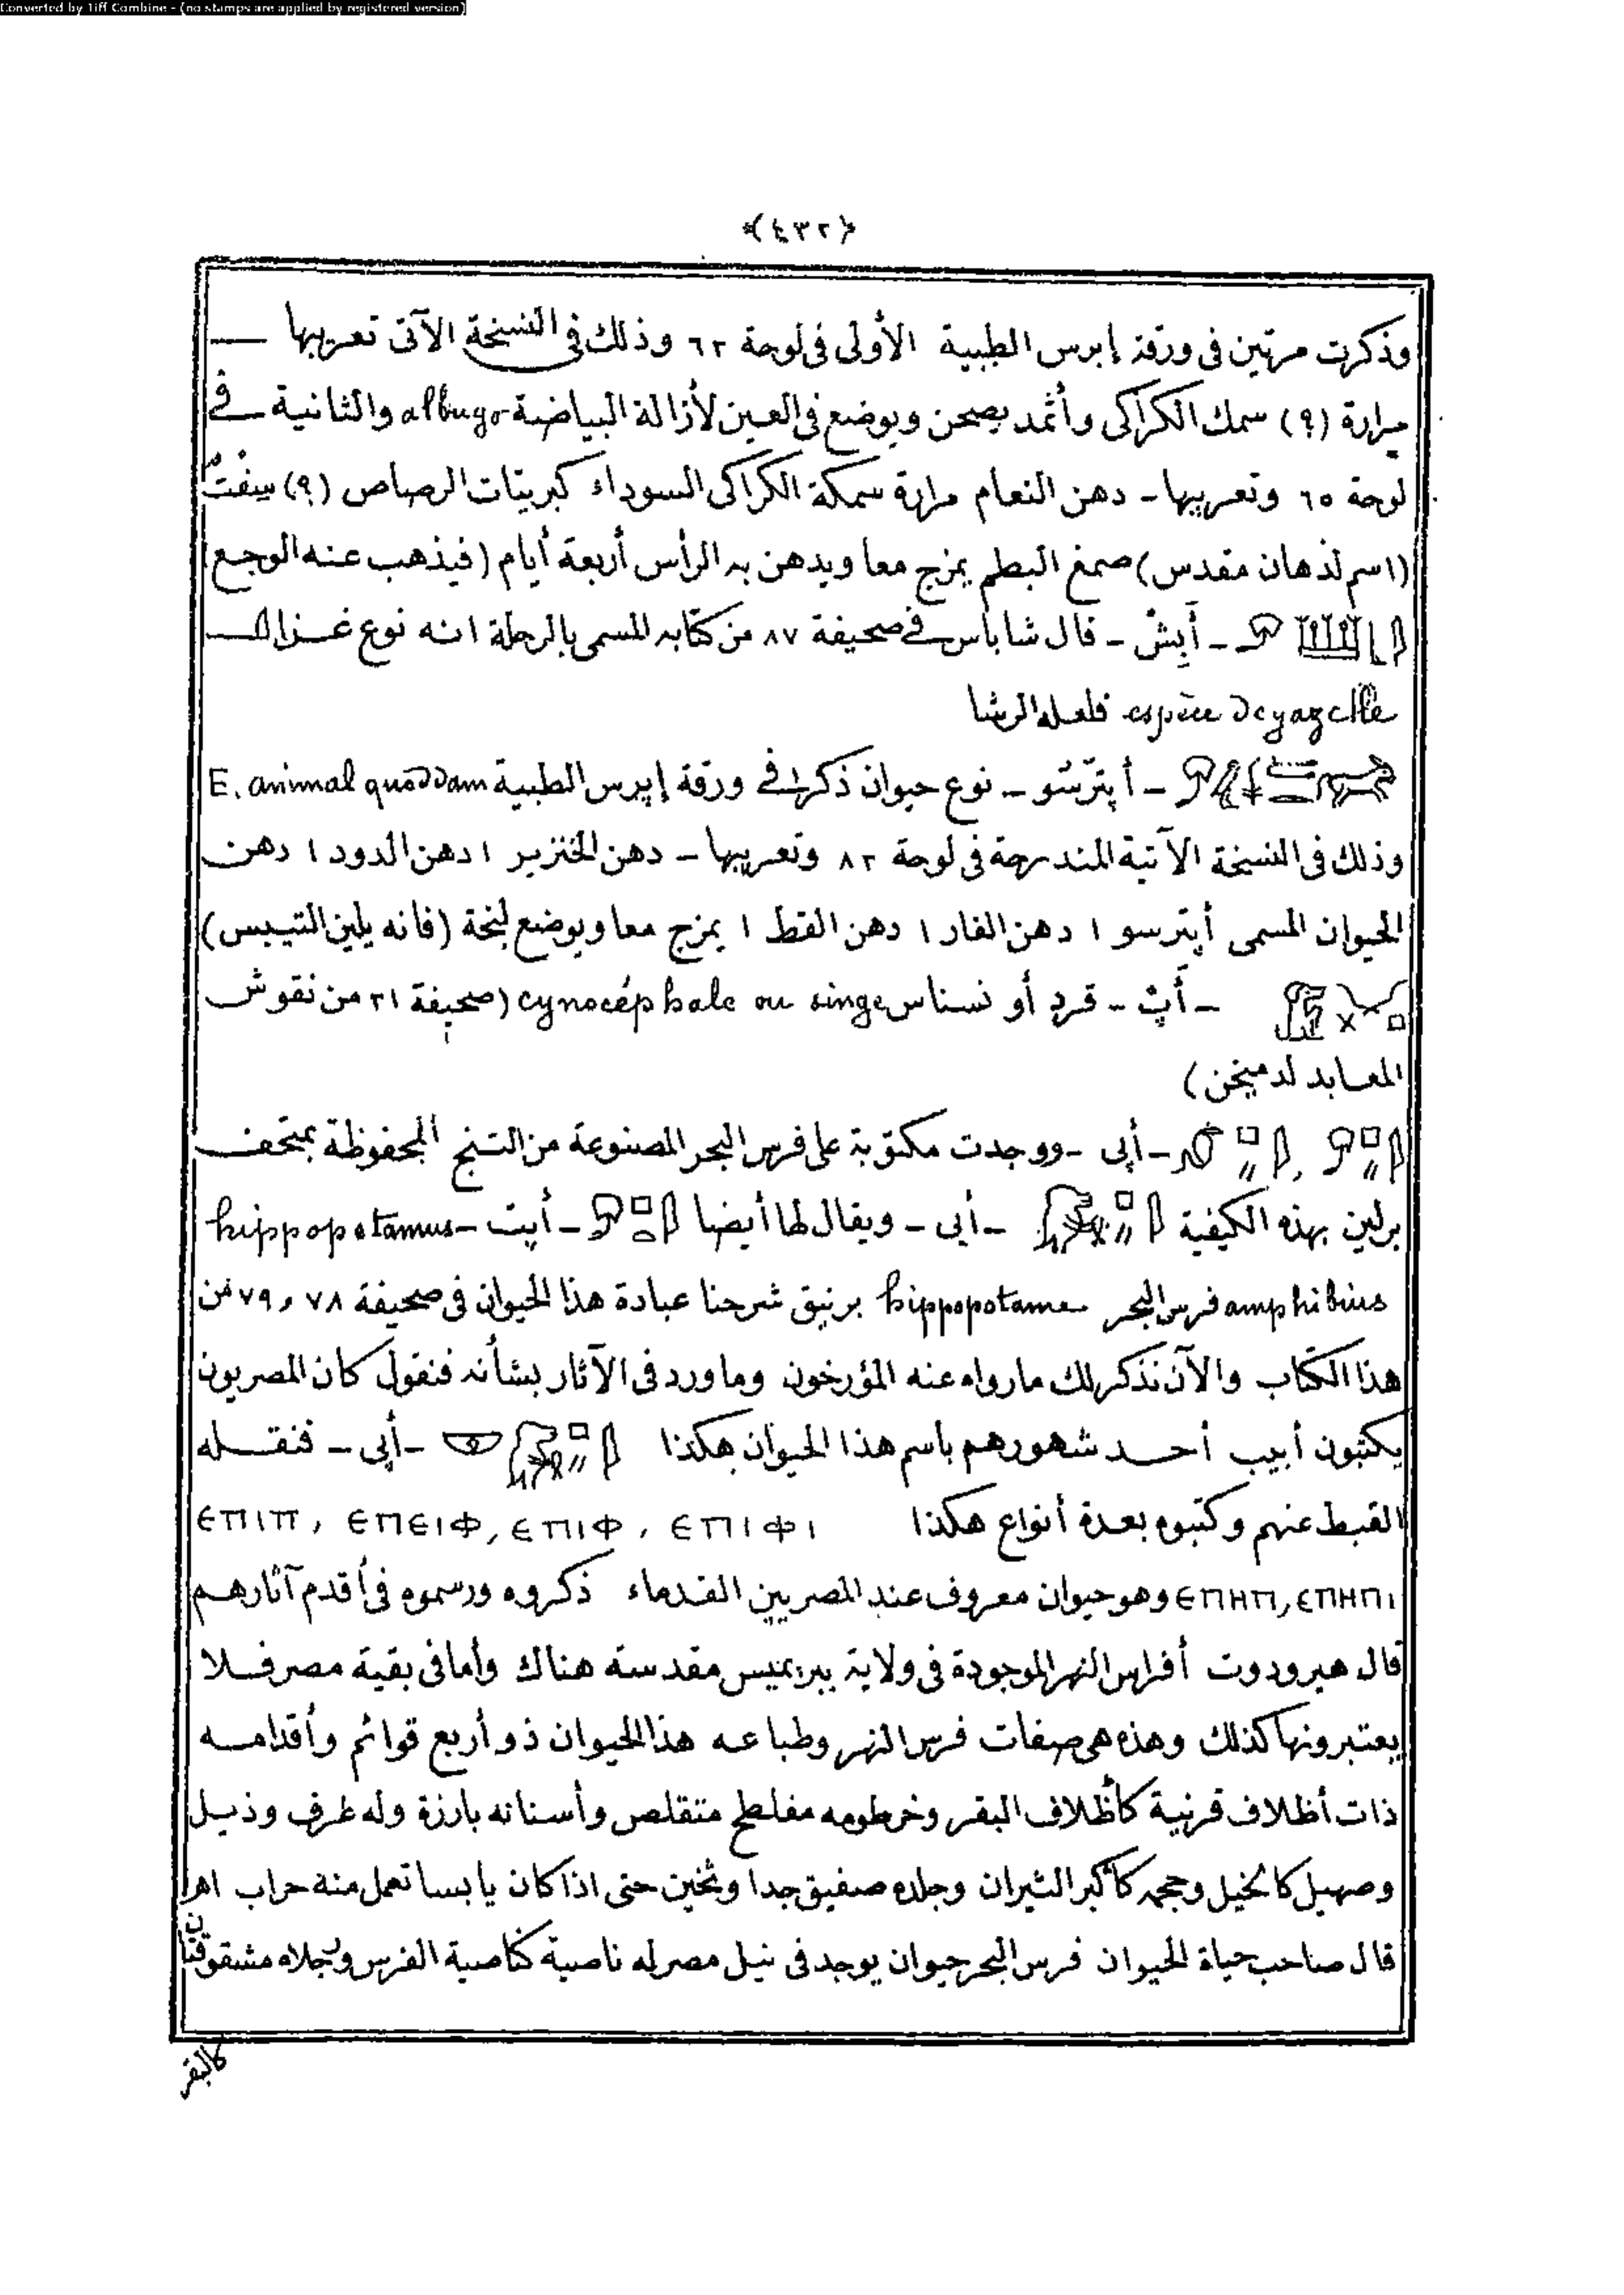 Converted by Tiff Combine - (no stamps are applied by registered version)
﴿٤٣٢﴾
وذكرت مرتين فى ورقة إبرس الطبية الأولى فى لوحة ٦٢ وذلك فى النسخة الآتى تعريبها —
مرارة (؟) سمك الكراكى وأثمد يصحن ويوضع فى العين لأزالة البياضة albugo والثانية فى
لوحة ٦٥ وتعريبها - دهن النعام مرارة سمكة الكراكى السوداء كبريتات الرصاص (؟) سِفْتْ
(اسم لدهان مقدس) صمغ البطم يمزج معا ويدهن به الرأس أربعة أيام (فيذهب عنه الوجع)
- أَبِشْ - قال شاباس فى صحيفة ٨٧ من كتابه المسمى بالرحلة انه نوع غزال
espèce de gazelle فلعله الرشا
- أپترسُو - نوع حيوان ذكر فى ورقة إبرس الطبية E. animal quoddam
وذلك فى النسخة الآتية المندرجة فى لوحة ٨٢ وتعريبها - دهن الخنزير ١ دهن الدود ١ دهن
الحيوان المسمى أپترسو ١ دهن الفار ١ دهن القط ١ يمزج معا ويوضع لبخة (فانه يلين التيبس)
- أپ - قرد أو نسناس cynocéphale ou singe (صحيفة ٢١ من نقوش
المعابد لدميخن)
- أپى - ووجدت مكتوبة على فرس البحر المصنوعة من التنج المحفوظة بمتحف
برلين بهذه الكيفية - أپى - ويقال لها أيضا - أپت - hippopotamus
amphibius فرس البحر hippopotame برنيق شرحنا عبادة هذا الحيوان فى صحيفة ٧٨ و٧٩ من
هذا الكتاب والآن نذكر لك مارواه عنه المؤرخون وماورد فى الآثار بشأنه فنقول كان المصريون
يكتبون أبيب أحد شهورهم باسم هذا الحيوان هكذا - أپى - فنقله
القبط عنهم وكتبوه بعدة أنواع هكذا ⲉⲡⲓⲫⲓ , ⲉⲡⲓⲫ , ⲉⲡⲉⲓⲫ , ⲉⲡⲓⲡ
ⲉⲡⲏⲡ, ⲉⲡⲏⲡⲓ وهو حيوان معروف عند المصريين القدماء ذكروه ورسموه فى أقدم آثارهم
قال هيرودوت أفراس النهر الموجودة فى ولاية ببريميس مقدسة هناك وأما فى بقية مصر فلا
يعتبرونها كذلك وهذه هى صفات فرس النهر وطباعه هذا الحيوان ذو أربع قوائم وأقدامه
ذات أظلاف قرنية كأظلاف البقر وخرطومه مفلطح متقلص وأسنانه بارزة وله عرف وذيل
وصهيل كالخيل وحجمه كأكبر الثيران وجلده صفيق جدا وثخين حتى اذا كان يابسا تعمل منه حراب اهـ
قال صاحب حياة الحيوان فرس البحر حيوان يوجد فى نيل مصر له ناصية كناصية الفرس ورجلاه مشقوقتان
كالبقر